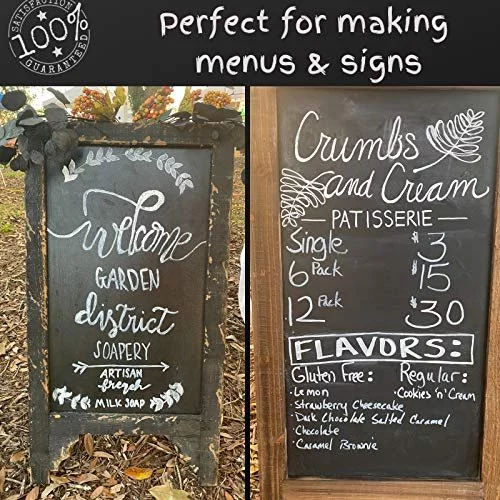 SATISFACTION
100%
GUARANTEED
Perfect for making
menus & signs
welcome
GARDEN
district
SOAPERY
ARTISAN
french
MILK SOAP
Crumbs
and Cream
PATISSERIE
Single $3
6 Pack $15
12 Pack $30
FLAVORS:
Gluten Free: Regular:
· Lemon · Cookies 'n' Cream
· Strawberry Cheesecake
· Dark Chocolate Salted Caramel
· Chocolate
· Caramel Brownie